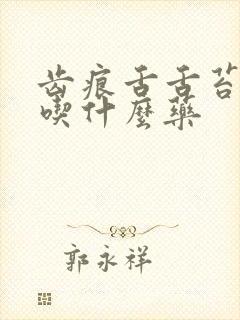 齿痕舌舌苔
喫什麼藥
郭永祥